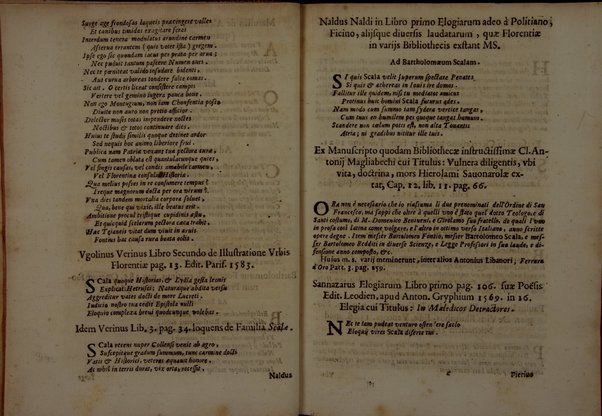 Surge age frondosas laqueis præcingere valles
Et canibus timidas exagitare feras
Interdum tenera modulatus arundine carmen
Asterna errantem (quis vetet ista) gregem.
Ipse ego sic quondam lacui per prata per amnes
Nec puduit tantum pascere Numen oves.
Nec te pœniteat valido tesudare bidente.
Aut curva arbores tondere falce comas.
Sic ait. O tanti tales consistere campo
Vertere vel gemino iugera panca bove.
Non ego Montegnum, non iam Consentia posto
Divite non auro non pratio afficior.
Delectet mores toties impendere noctes
Noctibus & totos continuere dies.
Huius te studii similis quoque detinet ardor
Sed nequis hoc animo liberiore frui.
Publica nam Patria vexant tua pectora cura,
Cum tamen oblata est quantulacunque quies,
Vel singis causas, vel condis amabile carmen,
Vel Florentina consulis Historia.
Quæ melius posses in re consumere tempus?
Ireque magnorum docta per ora virum?
Vna dies tandem mortalia corpora solvet,
Quæ, bene qui vixit, ille beatus erit.
Ambitione procul tristique cupidine auri
Et quicquid scelerum pectora cæca trahit.
Hac Teianus vitat dum vivit in arvis
Fontibus hat causa rura beata colit.
Vgolinus Verinus Libro Secundo de Illustratione Vrbis
Florentiæ pag. 13. Edit. Parif. 1583.
SCala quoque Historias, & Lydia gesta Ironis
Explicat: Hetruscis Naturaque abdita versu
Aggreditur vates docti de more Lucreti.
Iudicio nostro tua cedet Epistola nulli
Eloquio complexa brevi quodcunque volebas.
Idem Verinus Lib. 3. pag. 34. loquens de Familia Scalæ.
SCala recens nuper Collensi venit ab agro,
Suscepitque gradum summum, tunc carmine docti
Vatis & Historici, veteras aquavit honore,
At nihil in terris durat, vix orta, recessit,
Naldus
Naldus Naldi in Libro primo Elogiarum adeo à Politiano,
Ficino, alijsque diversis laudatarum, quæ Florentiæ
in varijs Bibliothecis exstant MS.
Ad Bartholomæum Scalam.
SI quis Scala velit superum spectare Penates,
Si quis & æthereas in Iouis ire domos.
Fallitur ille quidem, nisi te modulator amicus
Protinus huic homini Scala futurus ades.
Nam modo cum summo tam sydera vertice tangas,
Cum tuus en humilem pes quoque tangat humum.
Scandere non cælum potis est, non alta Tonantis
Atria; ni gradibus vtitur ille tuis.
Ex Manuscripto quodam Bibliothecæ instructissimæ Cl. An-
tonij Magliabechi cui Titulus: Vulnera diligentis, vbi
vita, doctrina, mors Hierolami Sauonarolæ ex-
tat, Cap. 12. lib. 11. pag. 66.
ORa non è necessario che io riassuma li due prenominati dell'Ordine di San
Francesco, ma sappi che oltre à quelli uno è stato quel dotto Teologo, e di
Santi costumi, di M. Domenico Beniuieni, e Girolamo suo fratello, de quali l'uno
in prosa così latina come volgare, e l'altro in ottimo verso Italiano, anno scritte
opere degne. Item misser Bartolomeo Fontio, misser Bartolomeo Scala, e mis-
ser Bartolomeo Redditi in diverse Scienze, e Legge Professori in sua laude, e di-
fensione anno composto, &c.
Huius m. s. varij meminerunt, inter alios Antonius Libanori, Ferrara
d'Oro Part. 3. pag. 159.
Sannazarus Elogiarum Libro primo pag. 106. suæ Poësis
Edit. Leodien, apud Anton. Gryphium 1569. in 16.
Elegia cui Titulus: In Maledicos Detractores.
NE te tam pudeat venturo ostendere sæclo
Eloquij vires Scala diserte tui.
c
Pierius